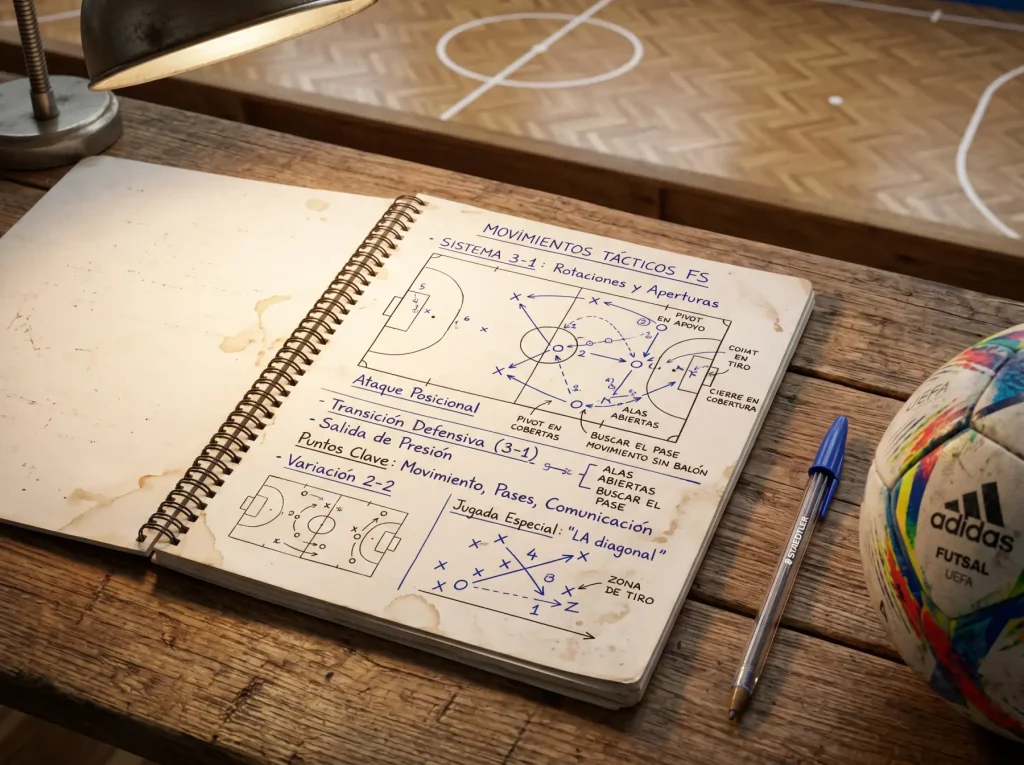 MOVIMIENTOS TÁCTICOS FS
• SISTEMA 3-1: Rotaciones y Aperturas
5
6
2
PIVOT
EN APOYO
COIMT
EN
TIRO
CIERRE EN
COBERTURA
ALAS
ABIERTAS
PIVOT EN
COBERTAS
BUSCAR EL PASE
MOVIMIENTO SIN BALÓN
Ataque Posicional
• Transición Defensiva (3-1)
• Salida de Presión
ALAS
ABIERTAS
BUSCAR EL
PASE
Puntos Clave: Movimiento, Pases, Comunicación
• Variación 2-2
Jugada Especial: "LA diagonal"
4
B
1
Z
ZONA
DE TIRO
STAEDTLER
UEFA
adidas
FUTSAL
UEFA